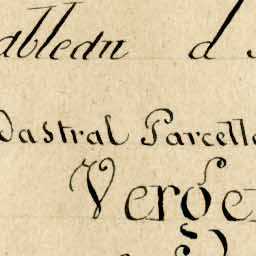 ableau d
dastral Parcelle
Verge